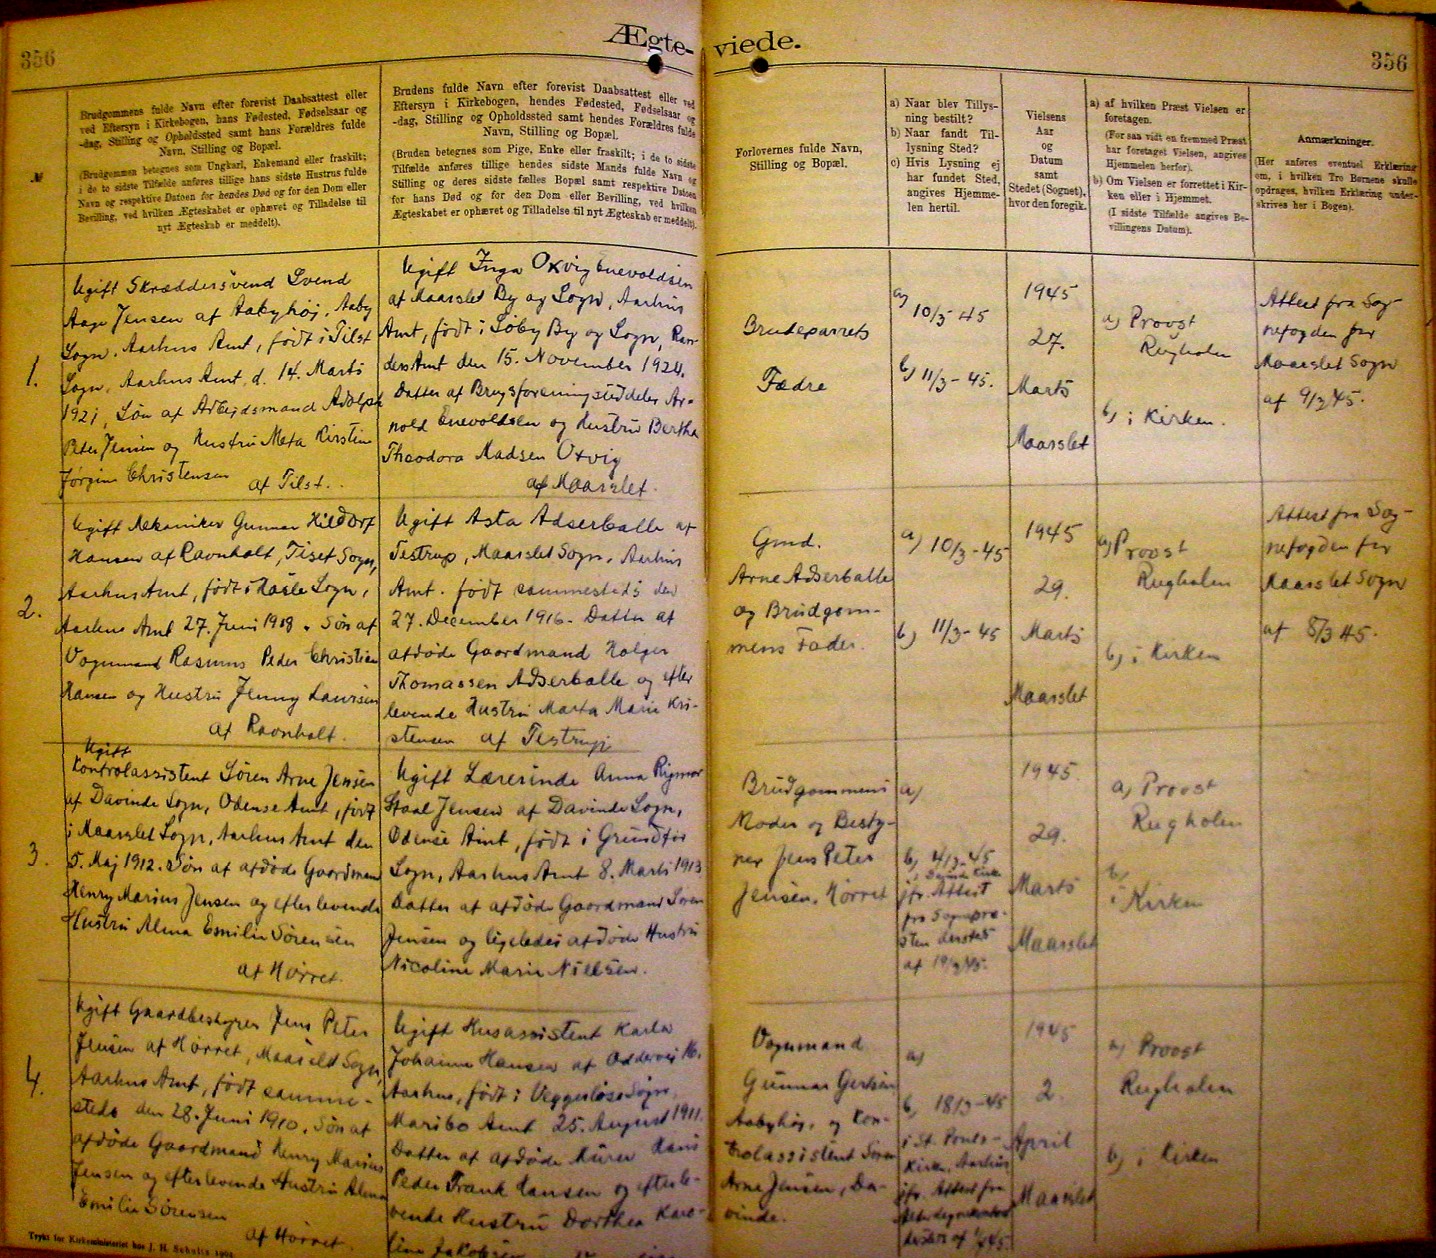 356
Ægte-
viede.
356
Brudgommens fulde Navn efter forevist Daabsattest eller
ved Eftersyn i Kirkebogen, hans Fødested, Fødselsaar og
-dag, Stilling og Opholdssted samt hans Forældres fulde
Navn, Stilling og Bopæl.
(Brudgommen betegnes som Ungkarl, Enkemand eller fraskilt;
i de to sidste Tilfælde anføres tillige hans sidste Hustrus fulde
Navn og respektive Datoen for hendes Død og for den Dom eller
Bevilling, ved hvilken Ægteskabet er ophævet og Tilladelse til
nyt Ægteskab er meddelt).
Brudens fulde Navn efter forevist Daabsattest eller ved
Eftersyn i Kirkebogen, hendes Fødested, Fødselsaar og
-dag, Stilling og Opholdssted samt hendes Forældres fulde
Navn, Stilling og Bopæl.
(Bruden betegnes som Pige, Enke eller fraskilt; i de to sidste
Tilfælde anføres tillige hendes sidste Mands fulde Navn og
Stilling og deres sidste fælles Bopæl samt respektive Datoen
for hans Død og for den Dom eller Bevilling, ved hvilken
Ægteskabet er ophævet og Tilladelse til nyt Ægteskab er meddelt).
Forlovernes fulde Navn,
Stilling og Bopæl.
a) Naar blev Tillys-
ning bestilt?
b) Naar fandt Til-
lysning Sted?
c) Hvis Lysning ej
har fundet Sted,
angives Hjemme-
len hertil.
Vielsens
Aar
og
Datum
samt
Stedet (Sognet),
hvor den foregik.
a) af hvilken Præst Vielsen er
foretagen.
(For saa vidt en fremmed Præst
har foretaget Vielsen, angives
Hjemmelen herfor).
b) Om Vielsen er forrettet i Kir-
ken eller i Hjemmet.
(I sidste Tilfælde angives Be-
villingens Datum).
Anmærkninger.
(Her anføres eventuel Erklæring
om, i hvilken Tro Børnene skulle
opdrages, hvilken Erklæring under-
skrives her i Bogen).
1.
Ugift Skræddersvend Svend
Aage Jensen af Aabyhøj, Aaby
Sogn, Aarhus Amt, født i Tilst
Sogn, Aarhus Amt, d. 14. Marts
1921, Søn af Arbejdsmand Adolph
Peter Jensen og Hustru Meta Kirstine
Jørgine Christensen
af Tilst.
Ugift Inga Oxvig Enevoldsen
af Maarslet By og Sogn, Aarhus
Amt, født i Søby By og Sogn, Ran-
ders Amt den 15. November 1924.
Datter af Brugsforeningsuddeler Ar-
nold Enevoldsen og Hustru Bertha
Theodora Madsen Oxvig
af Maarslet.
Brudeparrets
Fædre
a) 10/3-45
b) 11/3-45.
1945
27.
Marts
Maarslet
a) Provst
Rugholm
b) i Kirken.
Attest fra Sog-
nefogden for
Maarslet Sogn
af 9/3 45.
2.
Ugift Mekaniker Gunnar Hildorf
Hansen af Ravnholt, Tiset Sogn,
Aarhus Amt, født i Hasle Sogn,
Aarhus Amt 27. Juni 1918. Søn af
Vognmand Rasmus Peder Christian
Hansen og Hustru Jenny Laursen
af Ravnholt.
Ugift Asta Adserballe af
Testrup, Maarslet Sogn, Aarhus
Amt. født sammesteds den
27. December 1916. Datter af
afdøde Gaardmand Holger
Thomassen Adserballe og efter
levende Hustru Marta Marie Kri-
stensen af Testrup
Gmd.
Arne Adserballe
og Brudgom-
mens Fader.
a) 10/3-45
b) 11/3-45
1945
29.
Marts
Maarslet
a) Provst
Rugholm
b) i Kirken
Attest fra Sog-
nefogden for
Maarslet Sogn
af 8/3 45.
3.
Ugift
Kontrolassistent Søren Arne Jensen
af Davinde Sogn, Odense Amt, født
i Maarslet Sogn, Aarhus Amt den
5. Maj 1912. Søn af afdøde Gaardmand
Henry Marius Jensen og efterlevende
Hustru Alma Emilie Sørensen
af Hørret.
Ugift Lærerinde Anna Rigmor
Staal Jensen af Davinde Sogn,
Odense Amt, født i Grundfør
Sogn, Aarhus Amt 8. Marts 1913
Datter af afdøde Gaardmand Søren
Jensen og ligeledes afdøde Hustru
Nicoline Marie Nielsen.
Brudgommens
Moder og Besty-
rer Jens Peter
Jensen, Hørret
a)
b) 4/3-45
i Davinde Kirke
jfr. Attest
fra Sognepræ-
sten dersteds
af 19/3 45.
1945.
29.
Marts
Maarslet
a) Provst
Rugholm
b)
i Kirken
4.
Ugift Gaardbestyrer Jens Peter
Jensen af Hørret, Maarslet Sogn,
Aarhus Amt, født samme-
steds den 28. Juni 1910, Søn af
afdøde Gaardmand Henry Marius
Jensen og efterlevende Hustru Alma
Emilie Sørensen
af Hørret.
Ugift Husassistent Karla
Johanne Hansen af Oddervej 16,
Aarhus, født i Veggerløse Sogn,
Maribo Amt 25. August 1911.
Datter af afdøde Murer Hans
Peder Frank Hansen og efterle-
vende Hustru Dorthea Karo-
line Jakobsen
Vognmand
Gunnar Gertsen
Aabyhøj, og Kon-
trolassistent Søren
Arne Jensen, Da-
vinde.
a)
b) 18/3-45
i St. Pouls-
Kirke, Aarhus
jfr. Attest fra
1945
2.
April
Maarslet
a) Provst
Rugholm
b) i Kirken
Trykt for Kirkeministeriet hos J. H. Schultz